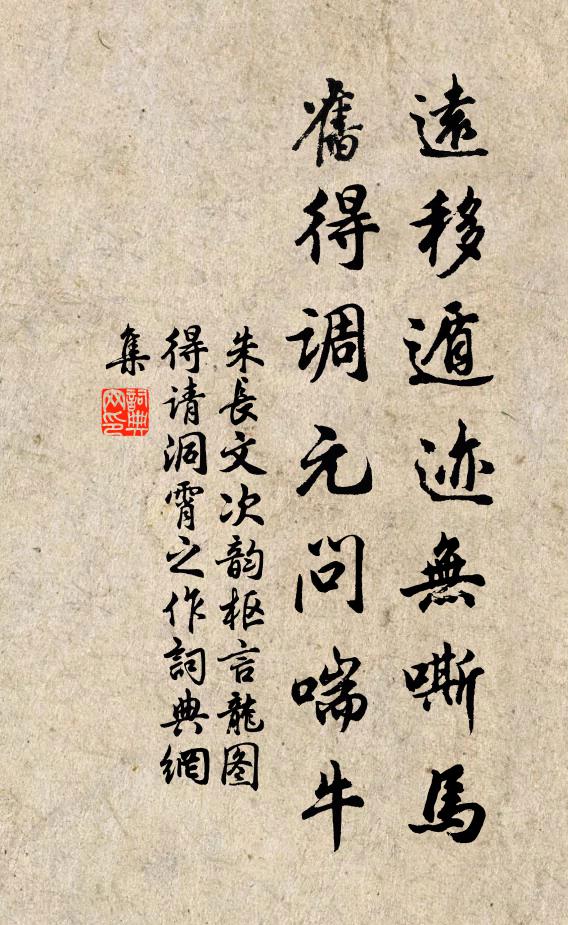 遠移遁迹無嘶馬
舊得調元問喘牛
朱長文次韵枢言龍图
得请洞霄之作詞典網
集
詞典網印